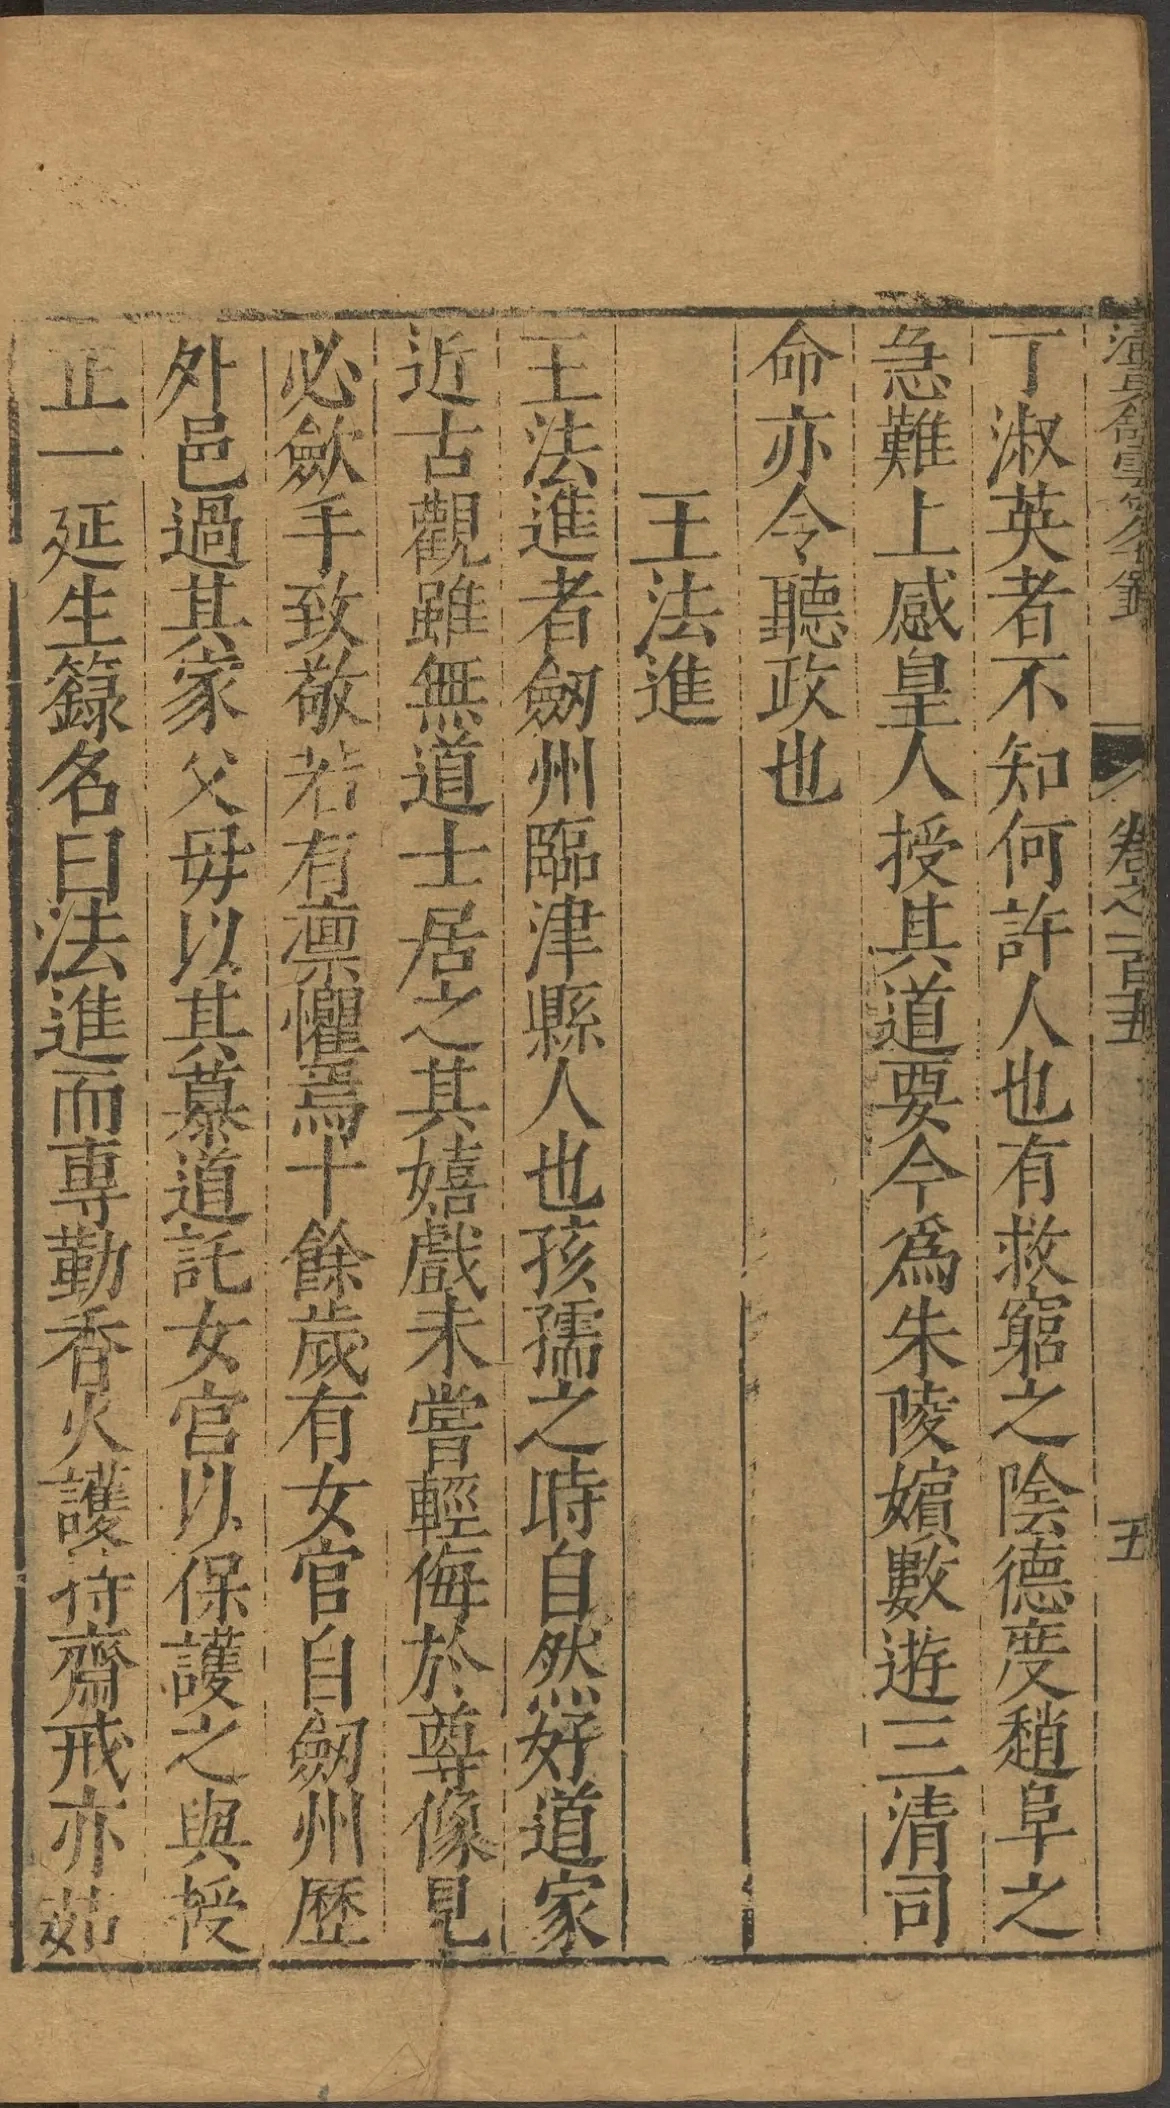 卷之一百五
五
丁淑英者不知何許人也有救窮之陰德度趙阜之
急難上感皇人授其道要今爲朱陵嬪數遊三清司
命亦令聽政也
王法進
王法進者劒州臨津縣人也孩孺之時自然好道家
近古觀雖無道士居之其嬉戲未嘗輕侮於尊像見
必歛手致敬若有凛懼焉十餘歲有女官自劒州歷
外邑過其家父母以其慕道託女官以保護之與授
正一延生籙名曰法進而專勤香火護持齋戒亦茹